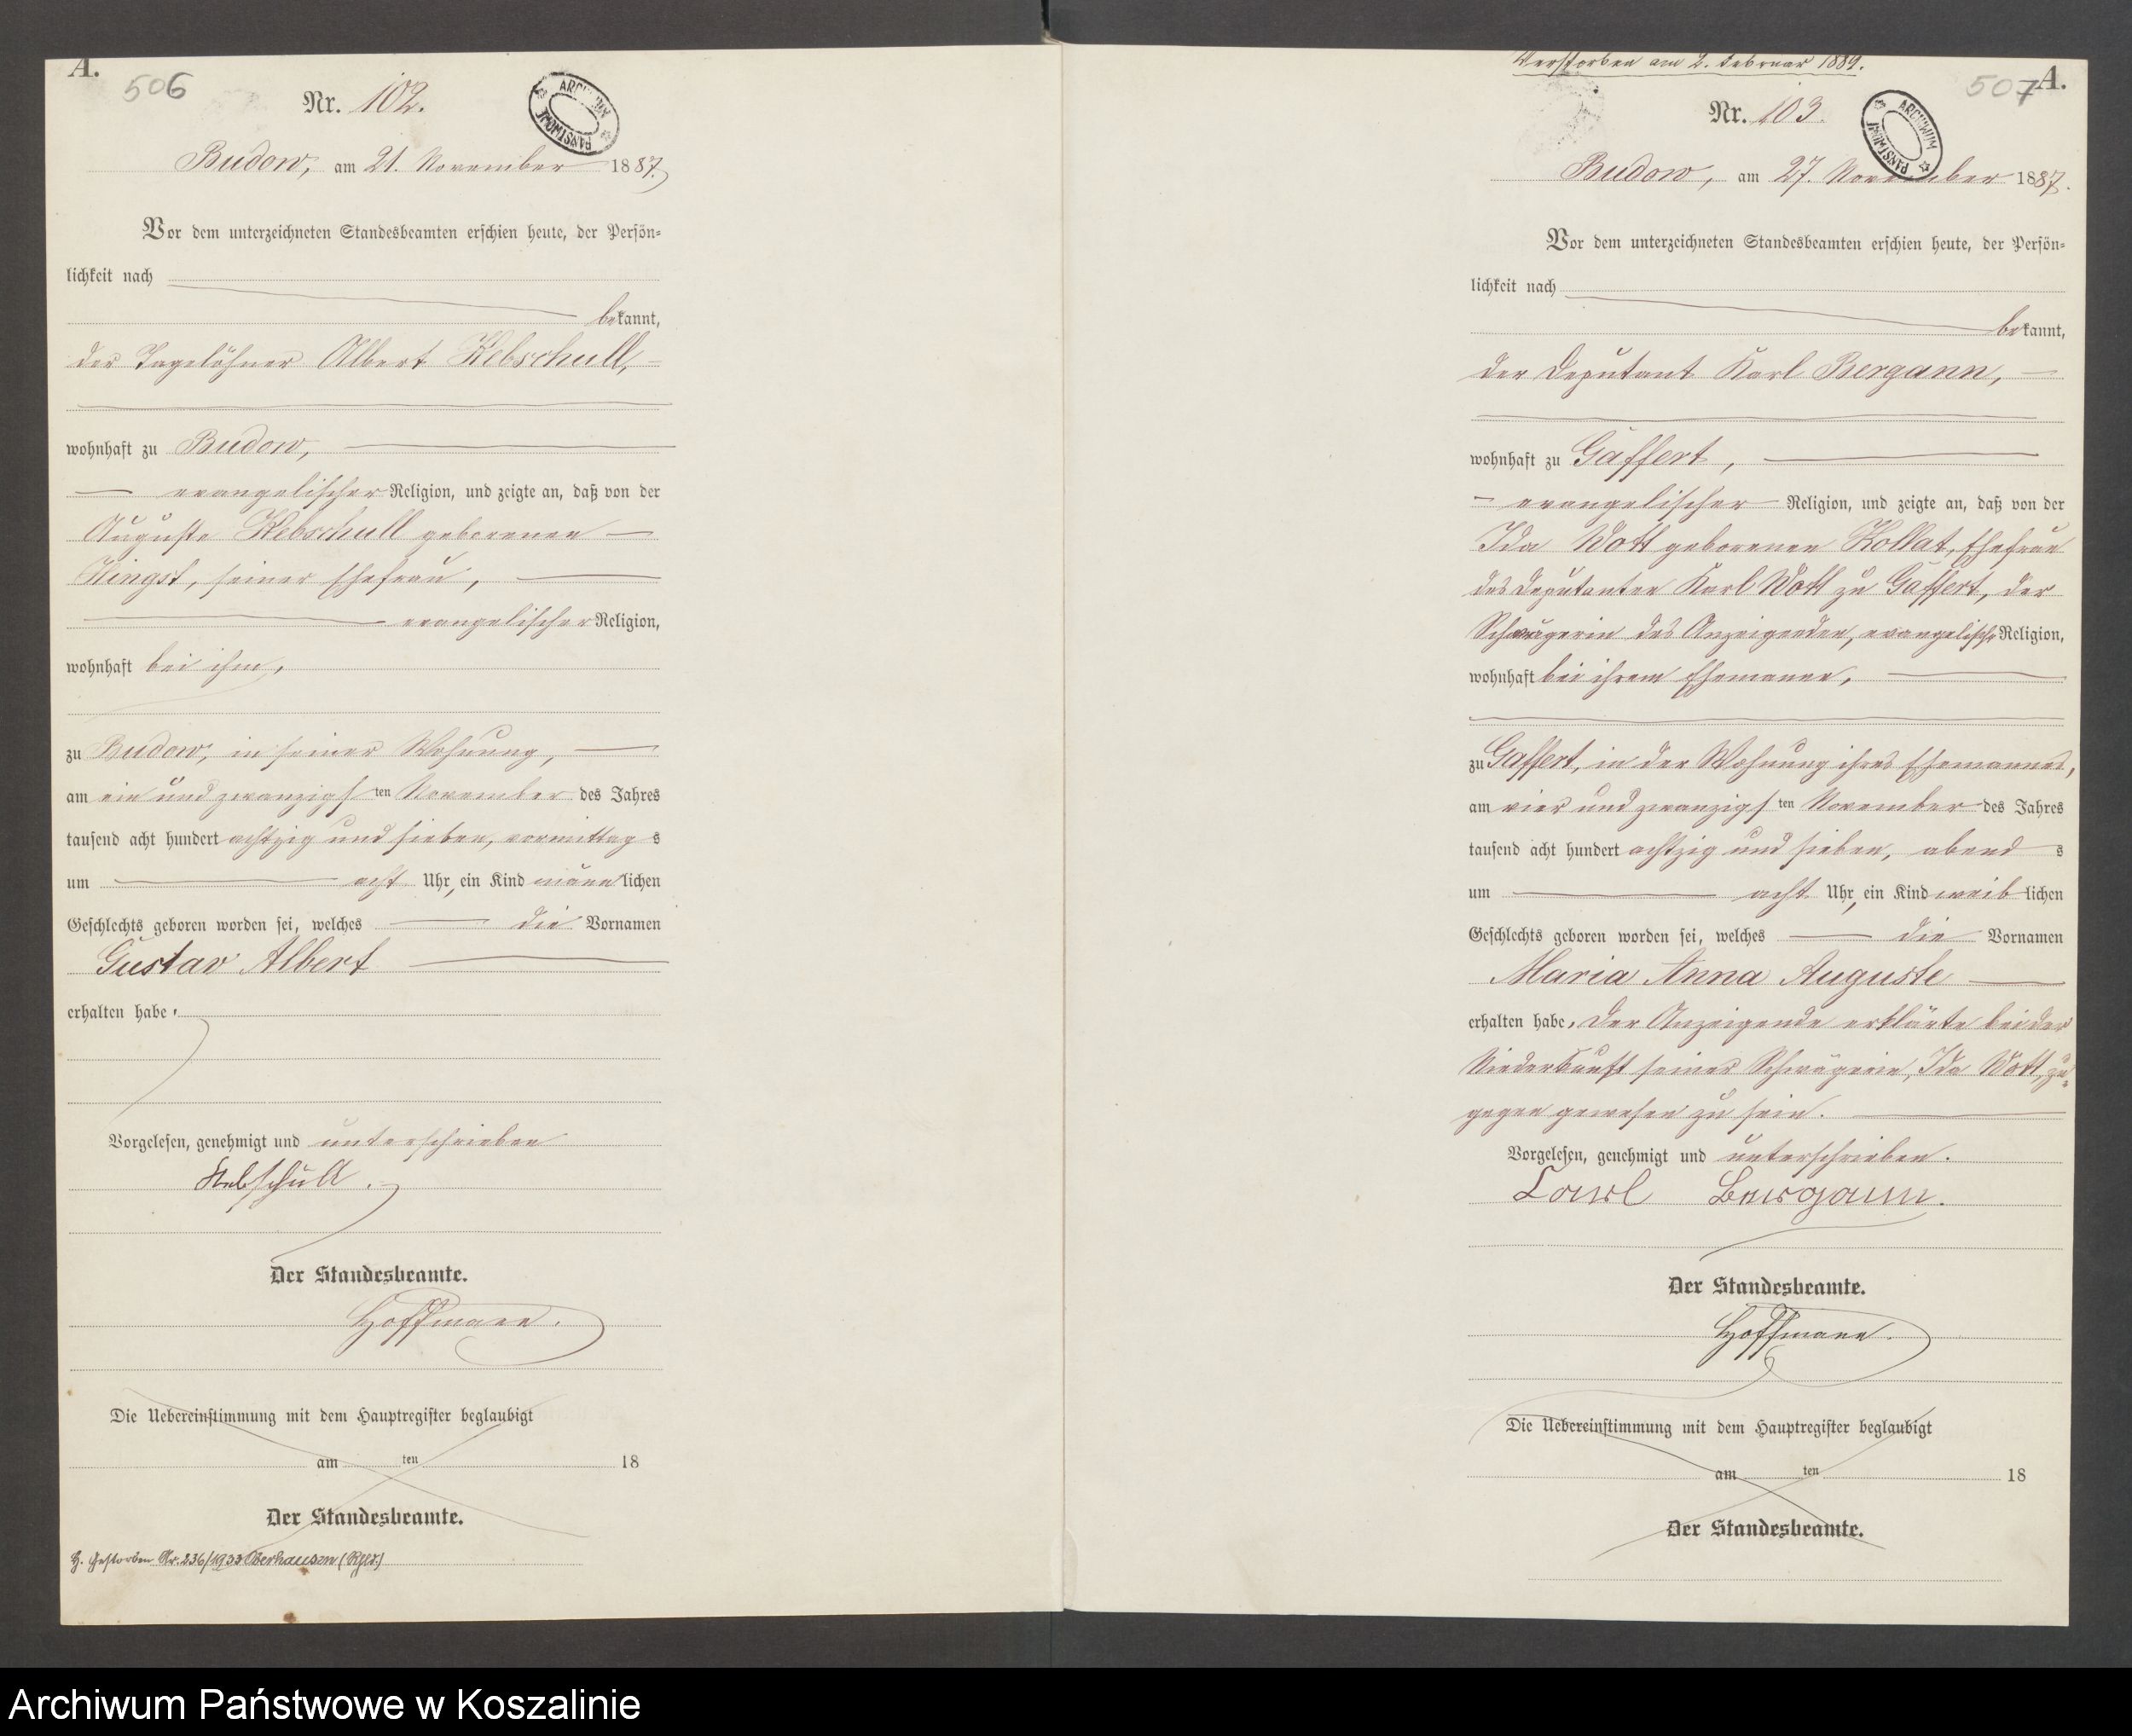 A.
506
Nr. 102.
ARCHIWUM PAŃSTWOWE
Budow, am 21. November 1887.
Vor dem unterzeichneten Standesbeamten erschien heute, der Persön-
lichkeit nach
bekannt,
der Tagelöhner Albert Kebschull,
wohnhaft zu Budow,
evangelischer Religion, und zeigte an, daß von der
Auguste Kebschull geborenen
Klingst, seiner Ehefrau,
evangelischer Religion,
wohnhaft bei ihm,
zu Budow, in seiner Wohnung,
am ein und zwanzigsten November des Jahres
tausend acht hundert achtzig und sieben, vormittags
um acht Uhr, ein Kind männlichen
Geschlechts geboren worden sei, welches die Vornamen
Gustav Albert
erhalten habe.
Vorgelesen, genehmigt und unterschrieben
Kebschull.
Der Standesbeamte.
Hoffmann.
Die Uebereinstimmung mit dem Hauptregister beglaubigt
am ten 18
Der Standesbeamte.
H. Gestorben Nr. 236/1933 Oberhausen (Rhld.)
Verstorben am 2. Februar 1889.
507
A.
Nr. 103.
ARCHIWUM PAŃSTWOWE
Budow, am 27. November 1887.
Vor dem unterzeichneten Standesbeamten erschien heute, der Persön-
lichkeit nach
bekannt,
der Deputant Karl Bergann,
wohnhaft zu Gaffert,
evangelischer Religion, und zeigte an, daß von der
Ida Wott geborenen Kollat, Ehefrau
des Deputanten Karl Wott zu Gaffert, der
Schwägerin des Anzeigenden, evangelischer Religion,
wohnhaft bei ihrem Ehemanne,
zu Gaffert, in der Wohnung ihres Ehemannes,
am vier und zwanzigsten November des Jahres
tausend acht hundert achtzig und sieben, abends
um acht Uhr, ein Kind weiblichen
Geschlechts geboren worden sei, welches die Vornamen
Maria Anna Auguste
erhalten habe. Der Anzeigende erklärte bei der
Niederkunft seiner Schwägerin, Ida Wott, zu-
gegen gewesen zu sein.
Vorgelesen, genehmigt und unterschrieben.
Carl Bergann.
Der Standesbeamte.
Hoffmann.
Die Uebereinstimmung mit dem Hauptregister beglaubigt
am ten 18
Der Standesbeamte.
Archiwum Państwowe w Koszalinie